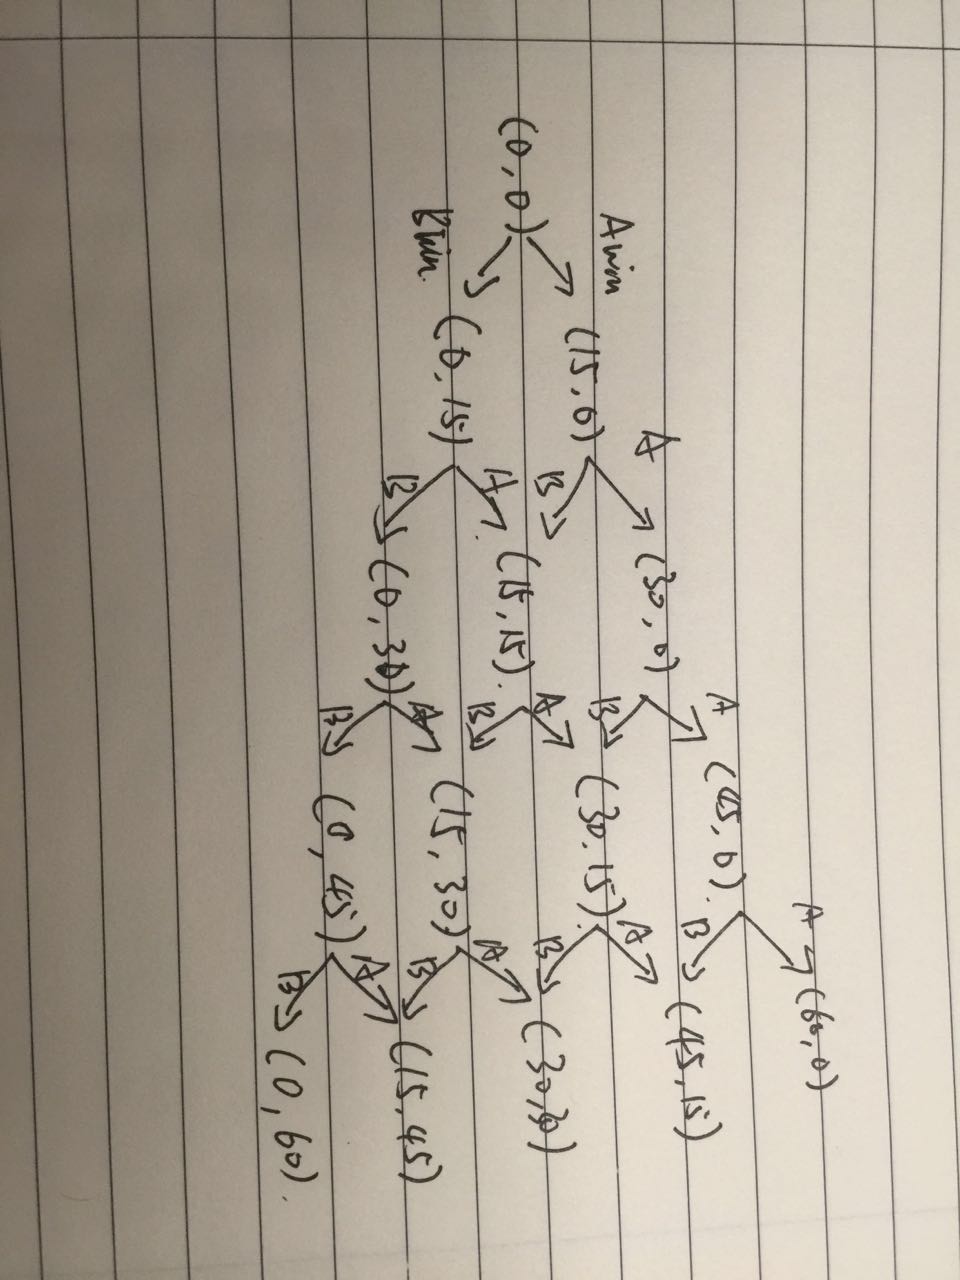 (0,0)
A win
B win.
(15,0)
(0,15)
A
B
A
B
(30,0)
(15,15).
(0,30)
A
B
A
B
A
B
(45,0).
(30,15).
(15,30)
(0,45)
A
B
A
B
A
B
A
B
(60,0)
(45,15)
(30,30)
(15,45)
(0,60).